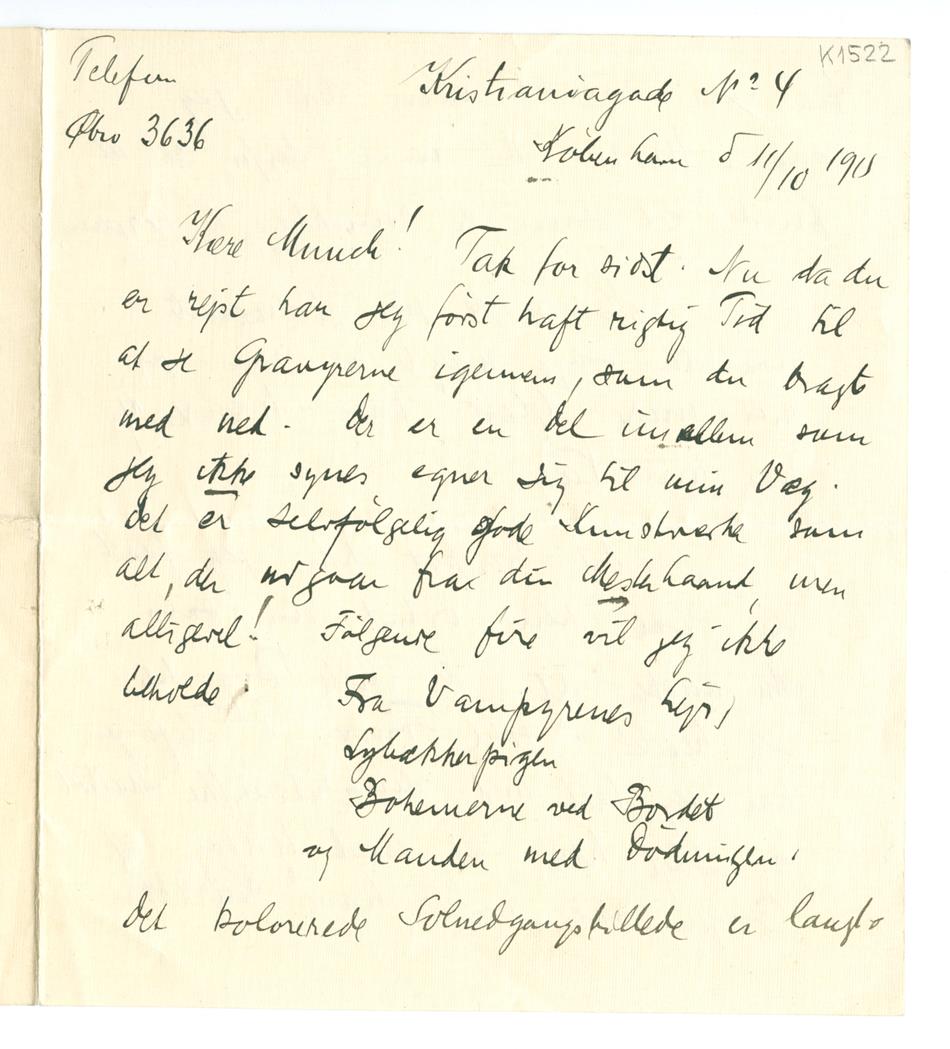 K1522
Telefon
Øbro 3636
Kristianiagade No 4
København d 11/10 1911
Kære Munch! Tak for sidst. Nu da du
er rejst har jeg først haft rigtig Tid til
at se Gravyrerne igennem, som du bragte
med ned. Der er en Del imellem som
jeg ikke synes egner sig til min Væg.
Det er selvfølgelig gode Kunstværker som
alt, der udgaar fra din Mesterhaand, men
alligevel! Følgende fire vil jeg ikke
beholde:
Fra Vampyrenes Lejr,
Lybækkerpigen
Bohemerne ved Bordet
og Manden med Dødningen.
Det kolorerede Solnedgangsbillede er langt